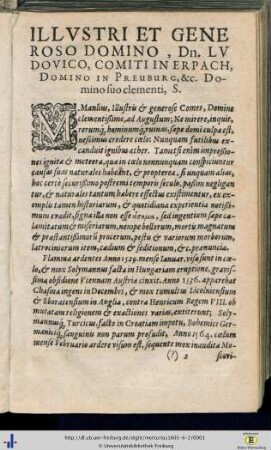 ILLVSTRI ET GENE
ROSO DOMINO, Dn. LV
DOVICO, COMITI IN ERPACH,
DOMINO IN PREUBURG, &c. Do-
mino suo clementi, S.
M. Manlius, Illustris & generose Comes, Domine
clementissime, ad Augustum: Ne mirere, inquit,
terrumq́, hominumq́, ruinas, sæpe domi culpa est,
nescimus credere cælo: Nunquam futilibus ex-
canduit ignibus æther. Tametsi enim impressio-
nes ignitæ & meteora, quæ in cœlo nonnunquam conspiciuntur
causas suas naturales habeant, & propterea, si unquam alias,
hoc certè securissimo postremi temporis seculo, passim negligan-
tur, & naturales tantùm habere effectus existimentur, ex ex-
emplis tamen historiarum, & quotidiana experientia mestissi-
mum evadit, signa illa non esse sed ingentium sæpe ca-
lamitatum & miseriarum, nempe bellorum, mortis magnatum
& præstantissimorũ procerum, pestis & variorum morborum,
latrociniorum item, cædium & seditionum, & c. prænuncia.
Flamma ardentes Anno 1529. mense Ianuar. visæ sunt in cœ-
lo, & mox Solymannus facta in Hungariam eruptione, gravis-
sima obsidione Viennam Austriæ cinxit. Anno 1536. apparebat
Chasma ingens in Decembri, & mox tumultus Licolniensium
& Eboratensium in Anglia, contra Henricum Regem VIII. ob
mutatam religionem & exactiones varias, extiterunt; Soly-
mannusq́, Turcicus, facto in Croatiam impetu, Bohemici Ger-
manicíq, sanguinis non parum profudit. Anno 1564. cœlum
mense Februario ardere visum est, sequente mox inaudita Mo-
(?) 2 scovi-
http://dl.ub.uni-freiburg.de/diglit/mercurius1605-6-2/0003
© Universitätsbibliothek Freiburg